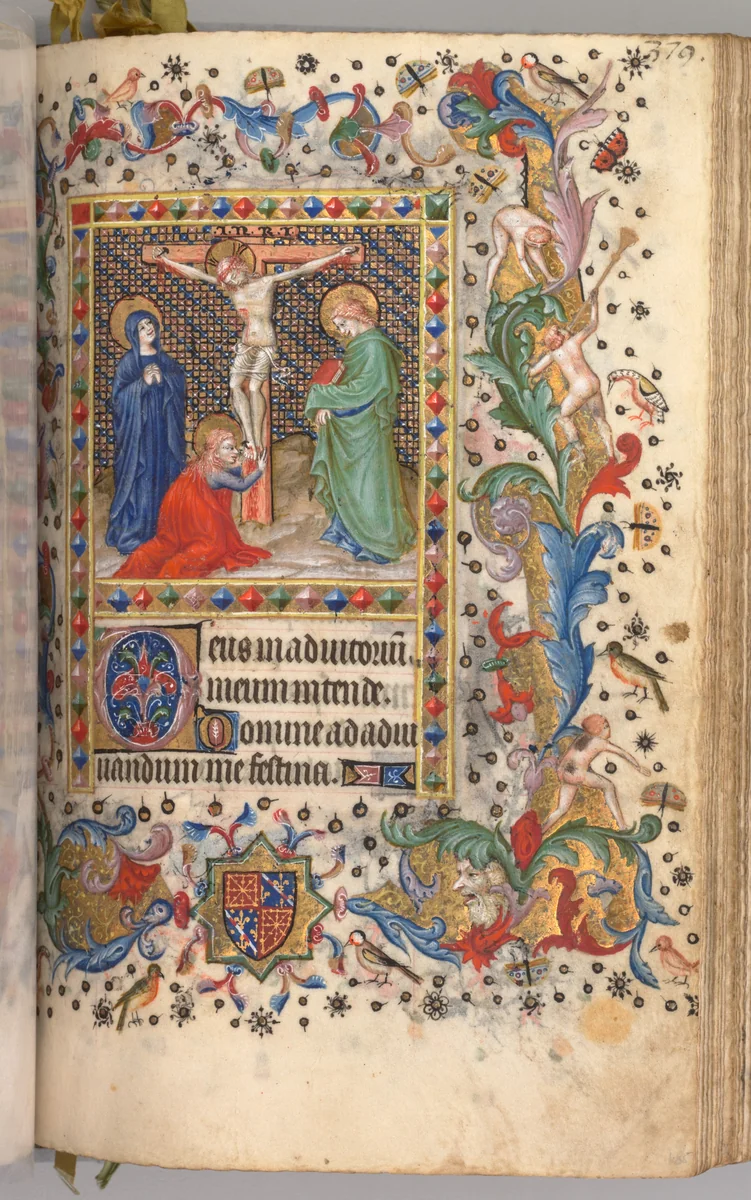 379.
INRI
Deus in adiutoriū
meum intende.
Domine ad adiu
uandum me festina.